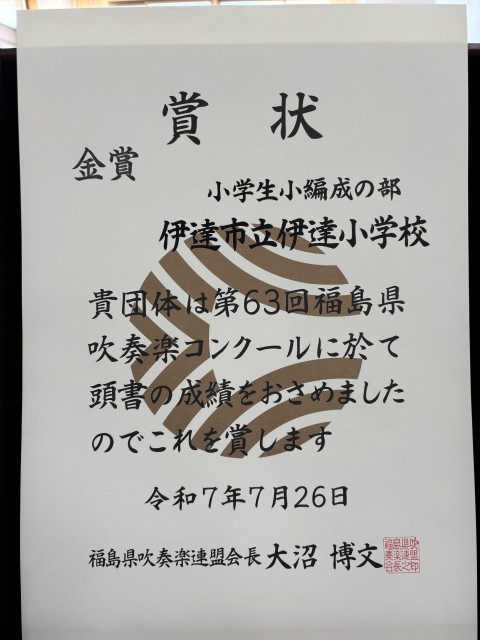 賞状
金賞
小学生小編成の部
伊達市立伊達小学校
貴団体は第63回福島県
吹奏楽コンクールに於て
頭書の成績をおさめました
のでこれを賞します
令和7年7月26日
福島県吹奏楽連盟会長 大沼 博文